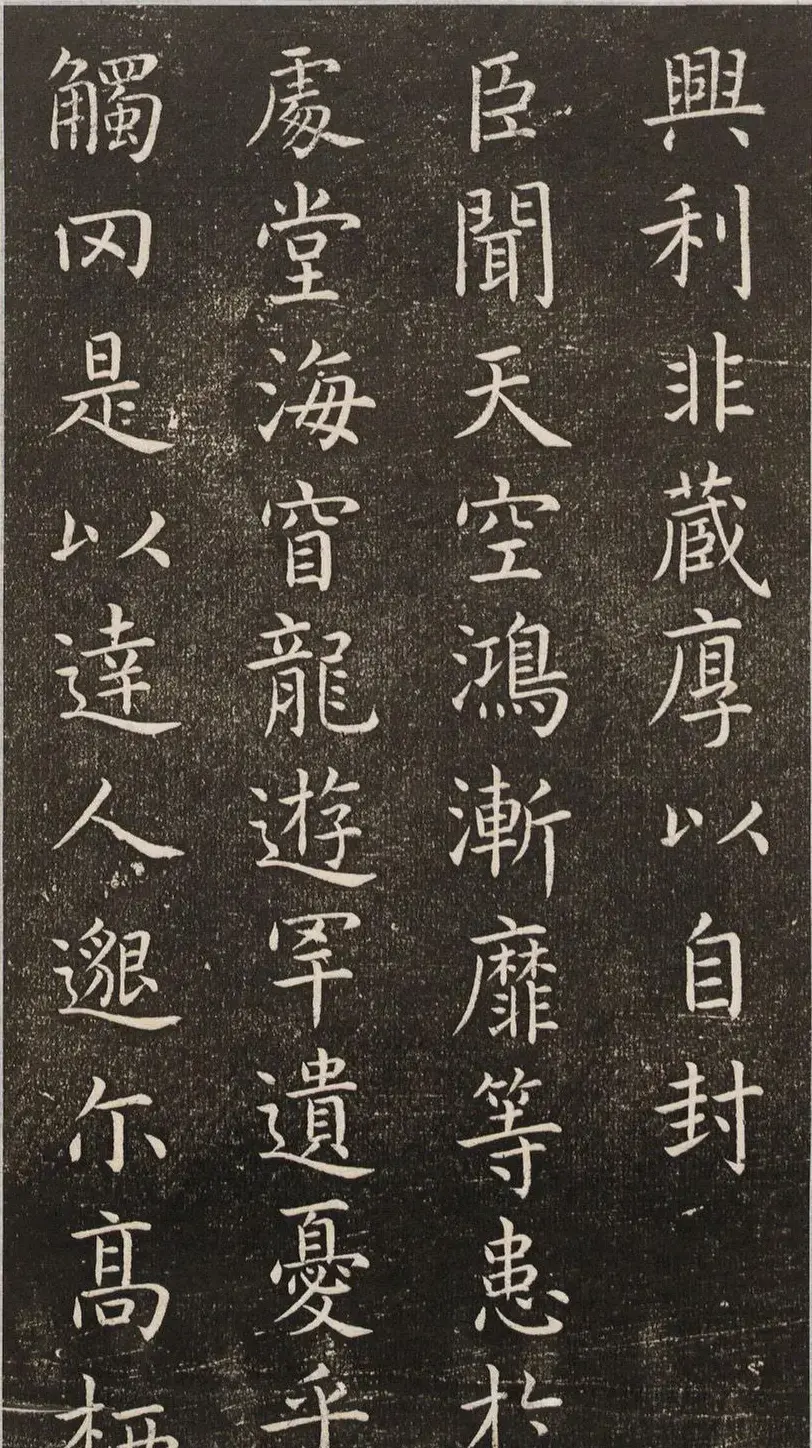 興利非蔵厚以自封
臣聞天空鴻漸靡等患於
處堂海窅龍遊罕遺憂乎
觸罓是以達人邈尔髙栖